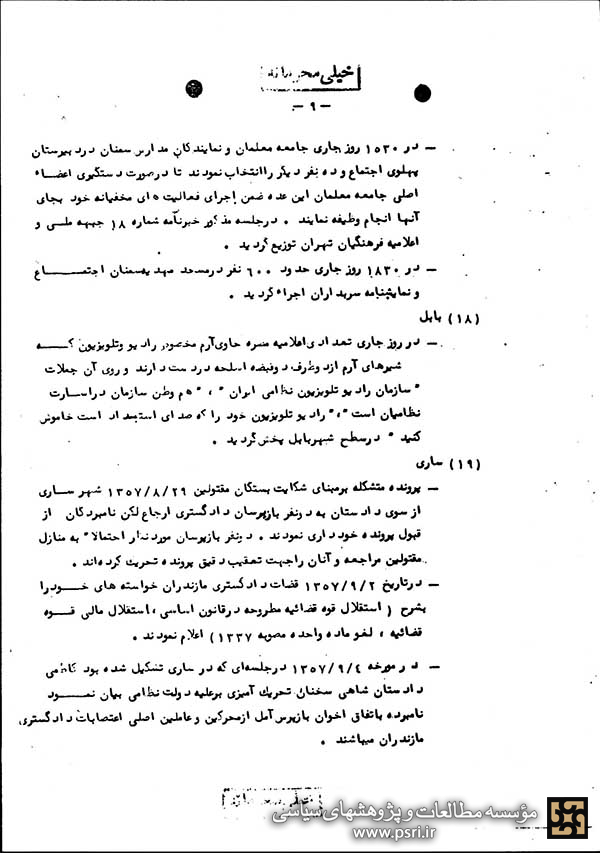 خیلی محرمانه
- ۹ -
- در ۱۵۳۰ روز جاری جامعه معلمان و نمایندگان مدارس سمنان در دبیرستان
پهلوی اجتماع و ده نفر دیگر را انتخاب نمودند تا در صورت دستگیری اعضاء
اصلی جامعه معلمان این عده ضمن اجرای فعالیت های مخفیانه خود بجای
آنها انجام وظیفه نمایند . در جلسه مذکور خبرنامه شماره ۱۸ جبهه ملی و
اعلامیه فرهنگیان تهران توزیع گردید .
- در ۱۸۳۰ روز جاری حدود ۶۰۰ نفر در مسجد مهدیه سمنان اجتماع
و نمایشنامه سربداران اجراء گردید .
(۱۸) بابل
- در روز جاری تعدادی اعلامیه منسره حاوی آرم مخصوص رادیو و تلویزیون که
شیرهای آرم از دو طرف دو قبضه اسلحه در دست دارند و روی آن جملات
" سازمان رادیو تلویزیون نظامی ایران " ، " هم وطن سازمان در اسارت
نظامیان است "،" رادیو تلویزیون خود را که صدای استبداد است خاموش
کنید " در سطح شهر بابل پخش گردید .
(۱۹) ساری
- پرونده متشکله بر مبنای شکایت بستگان مقتولین ۱۳۵۷/۸/۲۹ شهر ساری
از سوی دادستان به دو نفر بازپرسان دادگستری ارجاع لکن نامبردگان از
قبول پرونده خودداری نمودند . دو نفر بازپرسان مورد نظر احتمالا" به منازل
مقتولین مراجعه و آنان را جهت تعقیب دقیق پرونده تحریک کرده اند .
- در تاریخ ۱۳۵۷/۹/۲ قضات دادگستری مازندران خواسته های خود را
بشرح ( استقلال قوه قضائیه مطروحه در قانون اساسی ، استقلال مالی قوه
قضائیه ، لغو ماده واحده مصوبه ۱۳۳۷ ) اعلام نمودند .
- در مورخه ۱۳۵۷/۹/۴ در جلسه ای که در ساری تشکیل شده بود کاظمی
دادستان شاهی سخنان تحریک آمیزی بر علیه دولت نظامی بیان نمود
نامبرده باتفاق اخوان بازپرس آمل از محرکین و عاملین اصلی اعتصابات دادگستری
مازندران میباشند .
مؤسسه مطالعات و پژوهشهای سیاسی
www.psri.ir